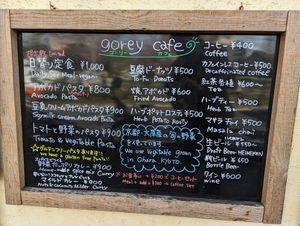 gorey cafe
ゴーリー カフェ
日替り定食 ¥1,000
Daily Set Meal-vegan
アボカドパスタ ¥800
Avocado Pasta
豆乳クリームアボカドパスタ ¥900
Soymilk Cream Avocado Pasta
トマトと野菜のパスタ ¥900
Tomato & Vegetable Pasta
We have a Gluten Free Pasta!!
Curry ¥900
Curry
豆腐ドーナッツ ¥500
To-Fu Donuts
焼アボカド ¥600
Fried Avocado
ハーブポテト ¥500
Herb Potato
京都・大原産の旬の野菜
を使っています。
We use Vegetable grown
in Ohara KYOTO
コーヒー ¥400
Coffee
カフェインレスコーヒー ¥500
Decaffeinated coffee
紅茶各種 ¥600
Tea
ハーブティー ¥500
Herb Tea
マサラチャイ ¥500
Masala chai
生ビール ¥550
Draft Beer
瓶ビール ¥650
Bottle Beer
ワイン ¥600
wine